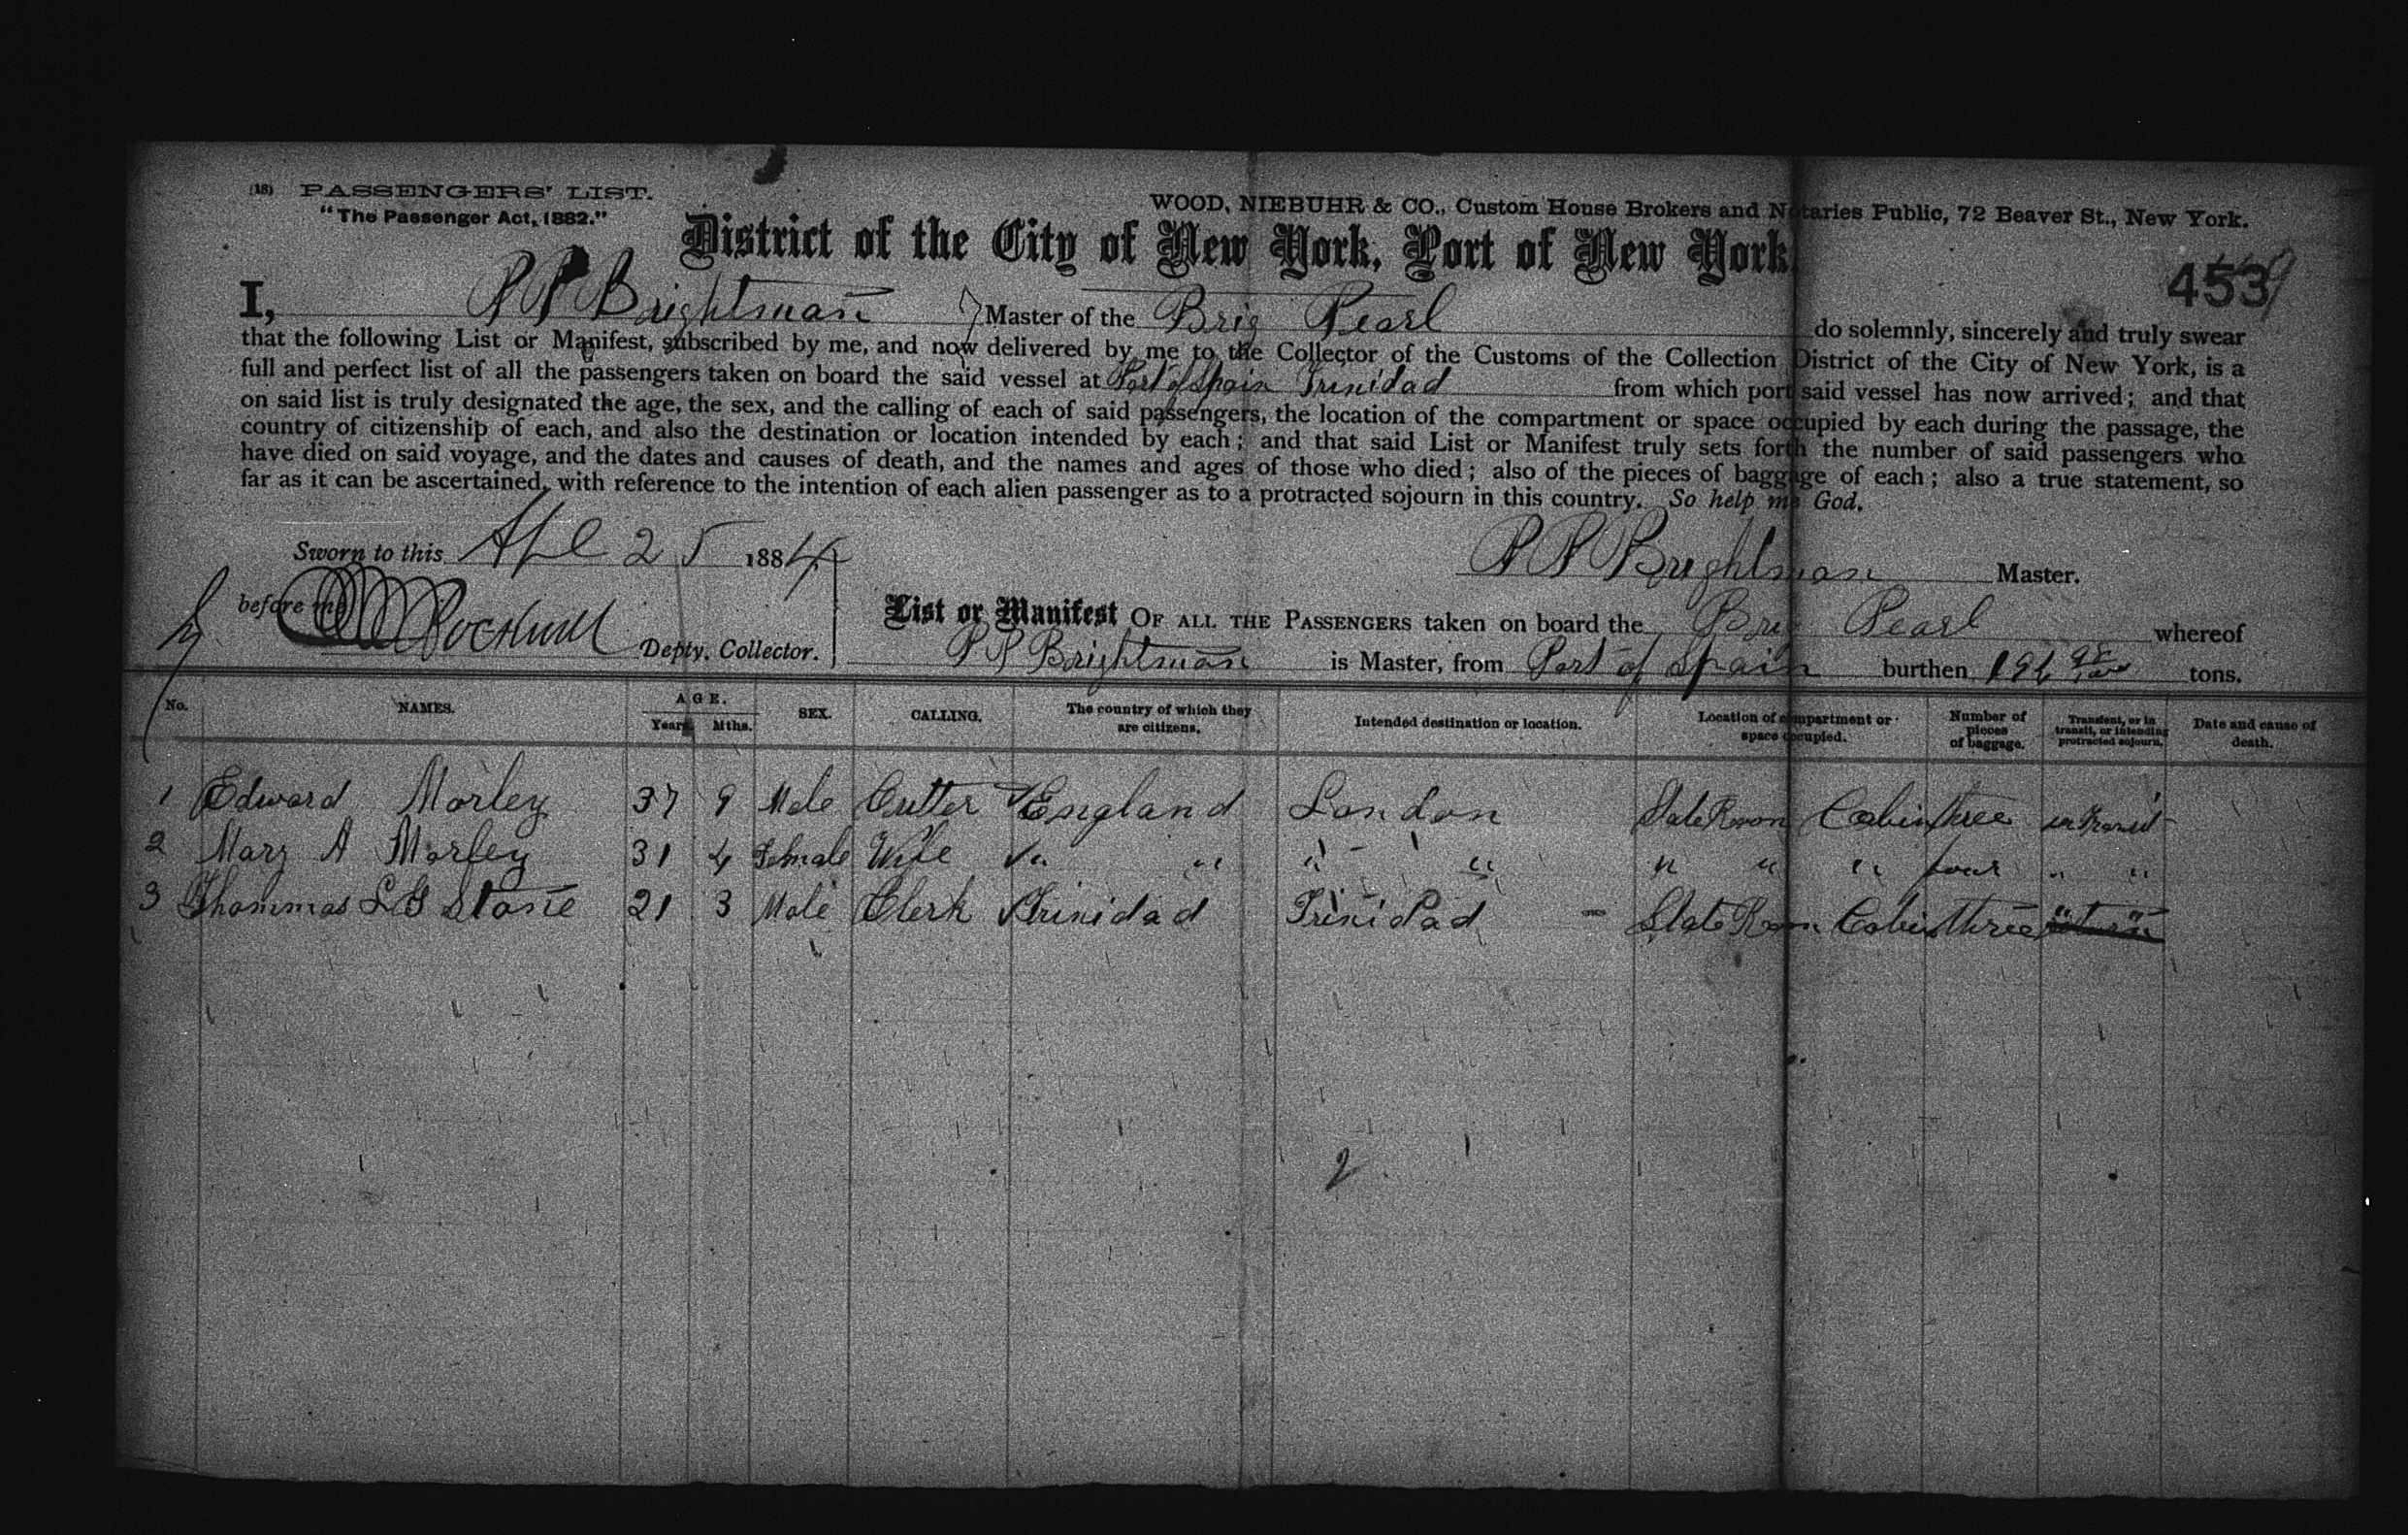 (18) PASSENGERS' LIST.
WOOD, NIEBUHR & CO., Custom House Brokers and Notaries Public, 72 Beaver St., New York.
"The Passenger Act, 1882."
District of the City of New York, Port of New York.
4539
I, P P Brightman Master of the Brig Pearl do solemnly, sincerely and truly swear
that the following List or Manifest, subscribed by me, and now delivered by me to the Collector of the Customs of the Collection District of the City of New York, is a
full and perfect list of all the passengers taken on board the said vessel at Port of Spain Trinidad from which port said vessel has now arrived; and that
on said list is truly designated the age, the sex, and the calling of each of said passengers, the location of the compartment or space occupied by each during the passage, the
country of citizenship of each, and also the destination or location intended by each; and that said List or Manifest truly sets forth the number of said passengers who
have died on said voyage, and the dates and causes of death, and the names and ages of those who died; also of the pieces of baggage of each; also a true statement, so
far as it can be ascertained, with reference to the intention of each alien passenger as to a protracted sojourn in this country. So help me God.
Sworn to this Apl 25 1884
P P Brightman Master.
before me Rockwell Depty. Collector.
List or Manifest OF ALL THE PASSENGERS taken on board the Brig Pearl whereof
P P Brightman is Master, from Port of Spain burthen 196 98/100 tons.
No. NAMES. AGE. Years. Mths. SEX. CALLING. The country of which they are citizens. Intended destination or location. Location of compartment or space occupied. Number of pieces of baggage. Transient, or in transit, or intending protracted sojourn. Date and cause of death.
1 Edward Morley 37 9 Male Cutter England London State Room Cabin three in Transit
2 Mary A Morley 31 4 Female Wife " " " " " " " four " "
3 Thommas L G Stone 21 3 Male Clerk Trinidad Trinidad - State Room Cabin three " "
2